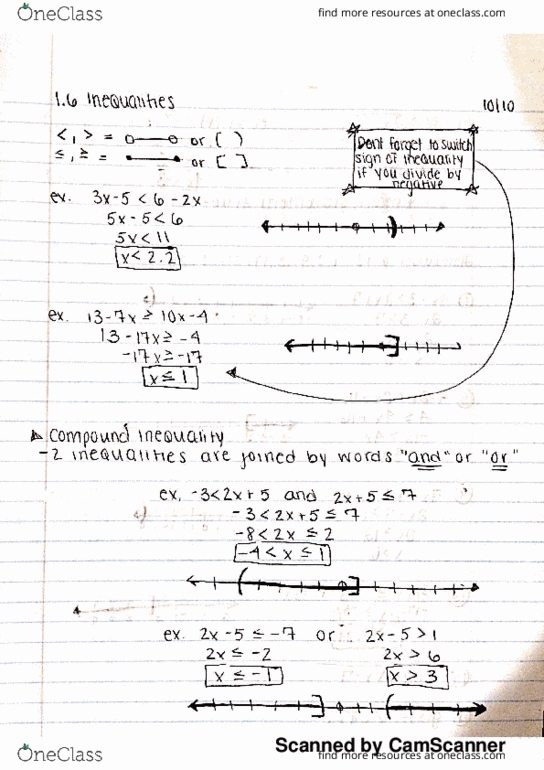 OneClass
find more resources at oneclass.com
1.6 Inequalities
10/10
<, > = or ( )
≤, ≥ = or [ ]
Dont forget to switch
sign of inequality
if you divide by
negative
ex. 3x-5 < 6 - 2x
5x - 5 < 6
5x < 11
x < 2.2
ex. 13-7x ≥ 10x-4
13 - 17x ≥ -4
-17x ≥ -17
x ≤ 1
Compound Inequality
-2 inequalities are joined by words "and" or "or"
ex, -3<2x+5 and 2x+5 ≤ 7
-3 < 2x+5 ≤ 7
-8 < 2x ≤ 2
-4 < x ≤ 1
ex. 2x-5 ≤ -7 or 2x-5 > 1
2x ≤ -2 2x > 6
x ≤ -1 x > 3
Scanned by CamScanner
OneClass
find more resources at oneclass.com